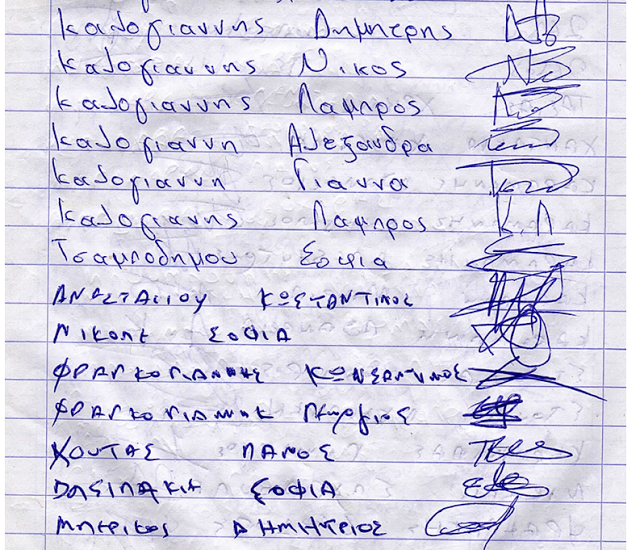 Καλογιαννης Δημητρης
Καλογιαννης Νικος
Καλογιαννης Λαμπρος
Καλογιαννη Αλεξανδρα
Καλογιαννη Γιαννα
Καλογιαννης Λαμπρος Κ.Λ
Τσαμποδημου Σοφια
ΑΝΑΣΤΑΣΙΟΥ ΚΩΣΤΑΝΤΙΝΟΣ
ΣΟΦΙΑ
ΦΡΑΓΚΟΓΙΑΝΝΗΣ
ΦΡΑΓΚΟΓΙΑΝΝΗΣ Γεωργιος
ΧΟΥΤΑΣ ΠΑΝΟΣ
ΒΑΣΙΛΑΚΗ ΣΟΦΙΑ
ΔΗΜΗΤΡΙΟΣ